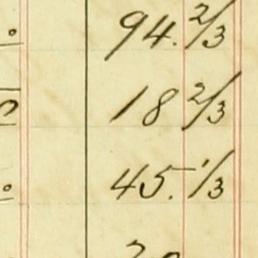 94. 2/3
18 2/3
45. 1/3